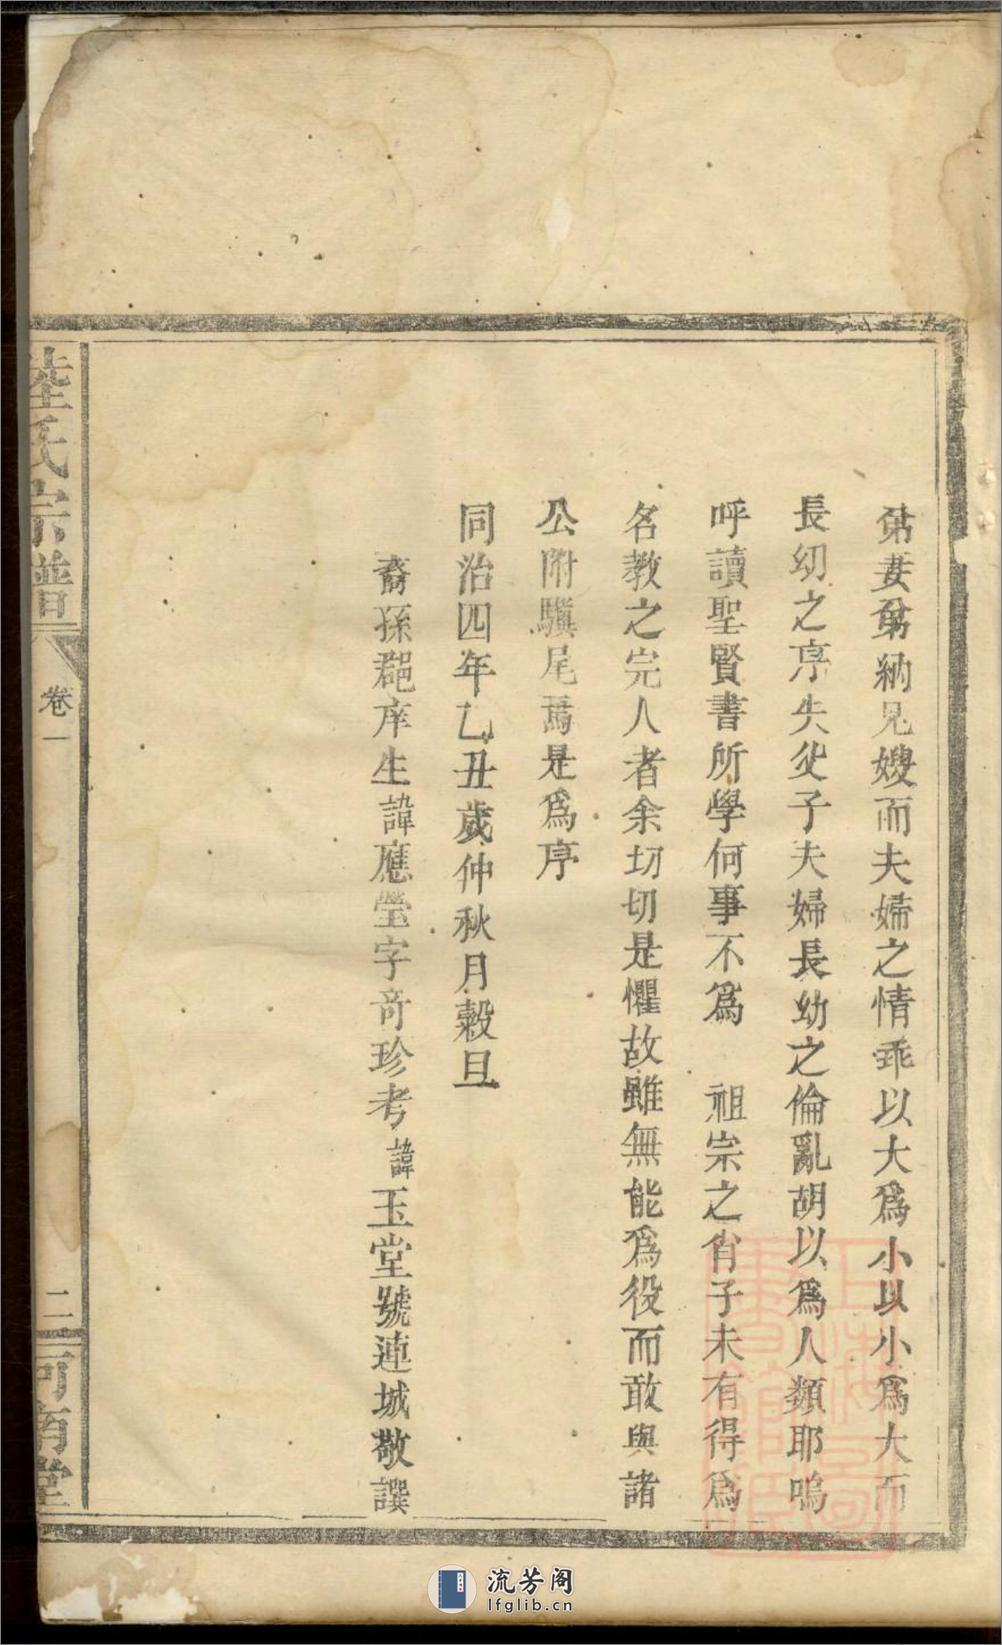 弟妻弟納兄嫂而夫婦之情乖以大爲小以小爲大而
長幼之序失父子夫婦長幼之倫亂胡以爲人類耶嗚
呼讀聖賢書所學何事不爲　祖宗之肖子未有得爲
名教之完人者余切切是懼故雖無能爲役而敢與諸
公附驥尾焉是爲序
同治四年乙丑歲仲秋月穀旦
裔孫郡庠生諱應瑩字奇珍考諱玉堂號連城敬譔
陸氏宗譜
卷一
二
河南堂
流芳阁
lfglib.cn